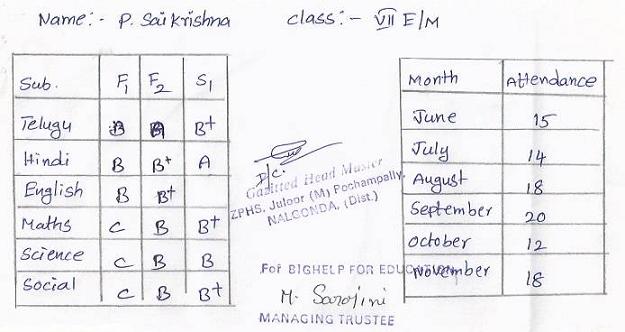 Name:- P. Sai Krishna class:- VII E/M
Sub. F1 F2 S1
Telugu B B B+
Hindi B B+ A
English B B+
Maths C B B+
Science C B B
Social C B B+
Month Attendance
June 15
July 14
August 18
September 20
October 12
November 18
I/C.
Gazitted Head Master
ZPHS, Juloor (M) Pochampally,
NALGONDA, (Dist.)
For BIGHELP FOR EDUCATION
M. Sarojini
MANAGING TRUSTEE